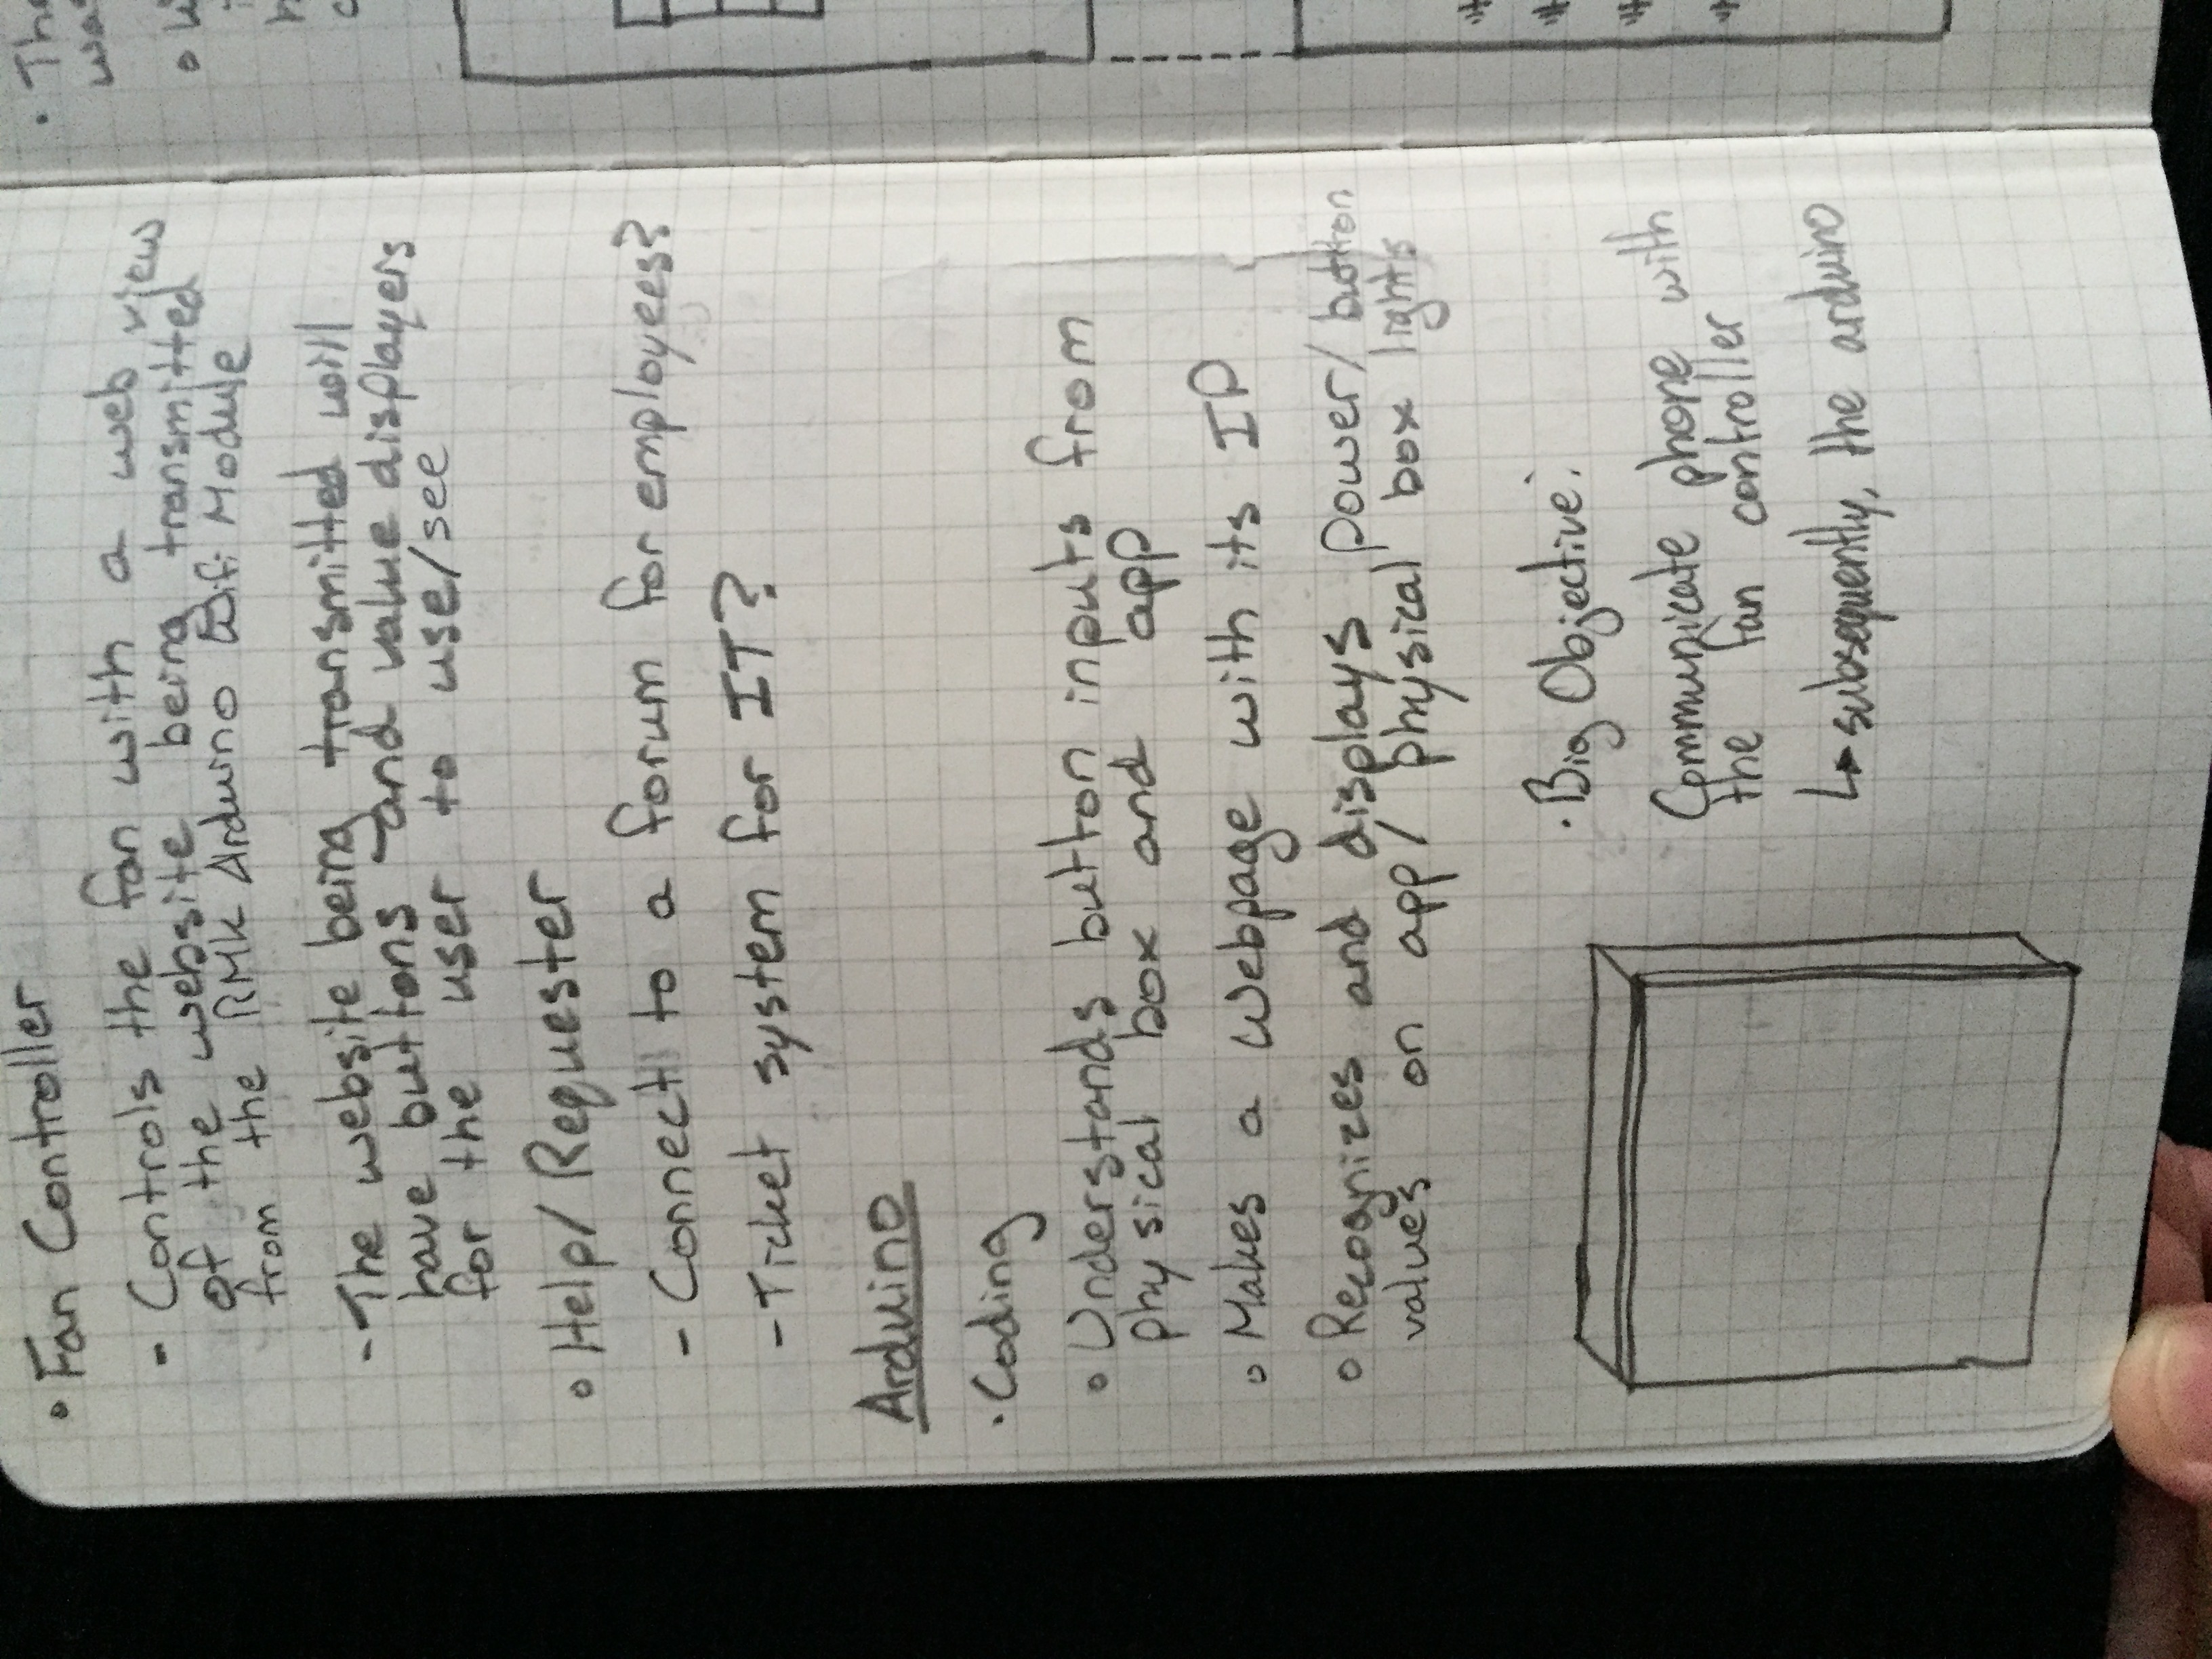 ∘ Fan Controller
- Controls the fan with a web view
of the website being transmitted
from the RMK Arduino Wifi Module
- The website being transmitted will
have buttons and value displayers
for the user to use/see
∘ Help/ Requester
- Connect to a forum for employees?
- Ticket system for IT?
Arduino
· Coding
∘ Understands button inputs from
physical box and app
∘ Makes a Webpage with its IP
∘ Recognizes and displays power/ button
values on app/ physical box lights
· Big Objective:
Communicate phone with
the fan controller
↳ subsequently, the arduino